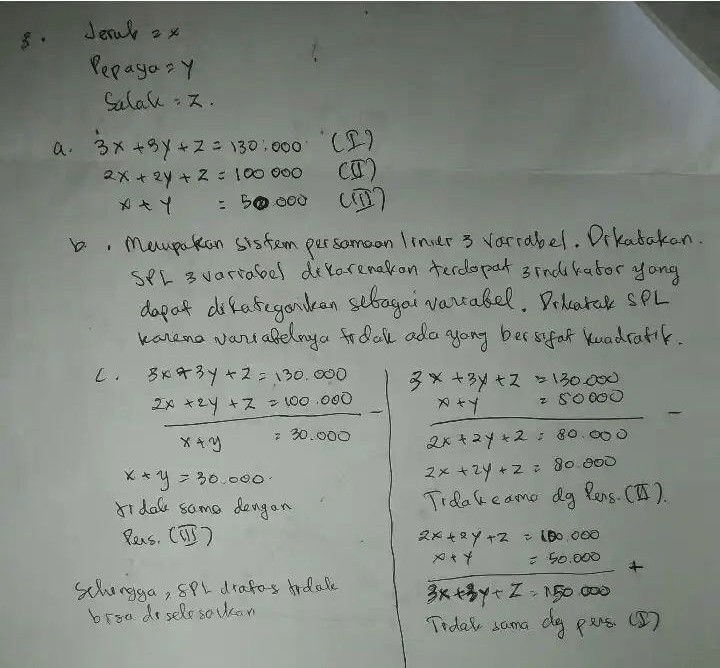 3. Jeruk = x
Pepaya = Y
Salak = Z.
a. 3x + 3y + z = 130.000 (I)
2x + 2y + z = 100 000 (II)
x + y = 50 000 (III)
b. Merupakan sistem persamaan linier 3 variabel. Dikatakan.
SPL 3 variabel dikarenakan terdapat 3 indikator yang
dapat dikategorikan sebagai variabel. Dikatak SPL
karena variabelnya tidak ada yang bersifat kuadratik.
c. 3x + 3y + z = 130.000
2x + 2y + z = 100.000 -
x + y = 30.000
x + y = 30.000.
tidak sama dengan
Pers. (III)
Sehingga, SPL diatas tidak
bisa diselesaikan
3x + 3y + z = 130.000
x + y = 50000 -
2x + 2y + z = 80.000
2x + 2y + z = 80.000
Tidak sama dg Pers. (II).
2x + 2y + z = 100.000
x + y = 50.000 +
3x + 3y + z = 150 000
Tidak sama dg pers (I)